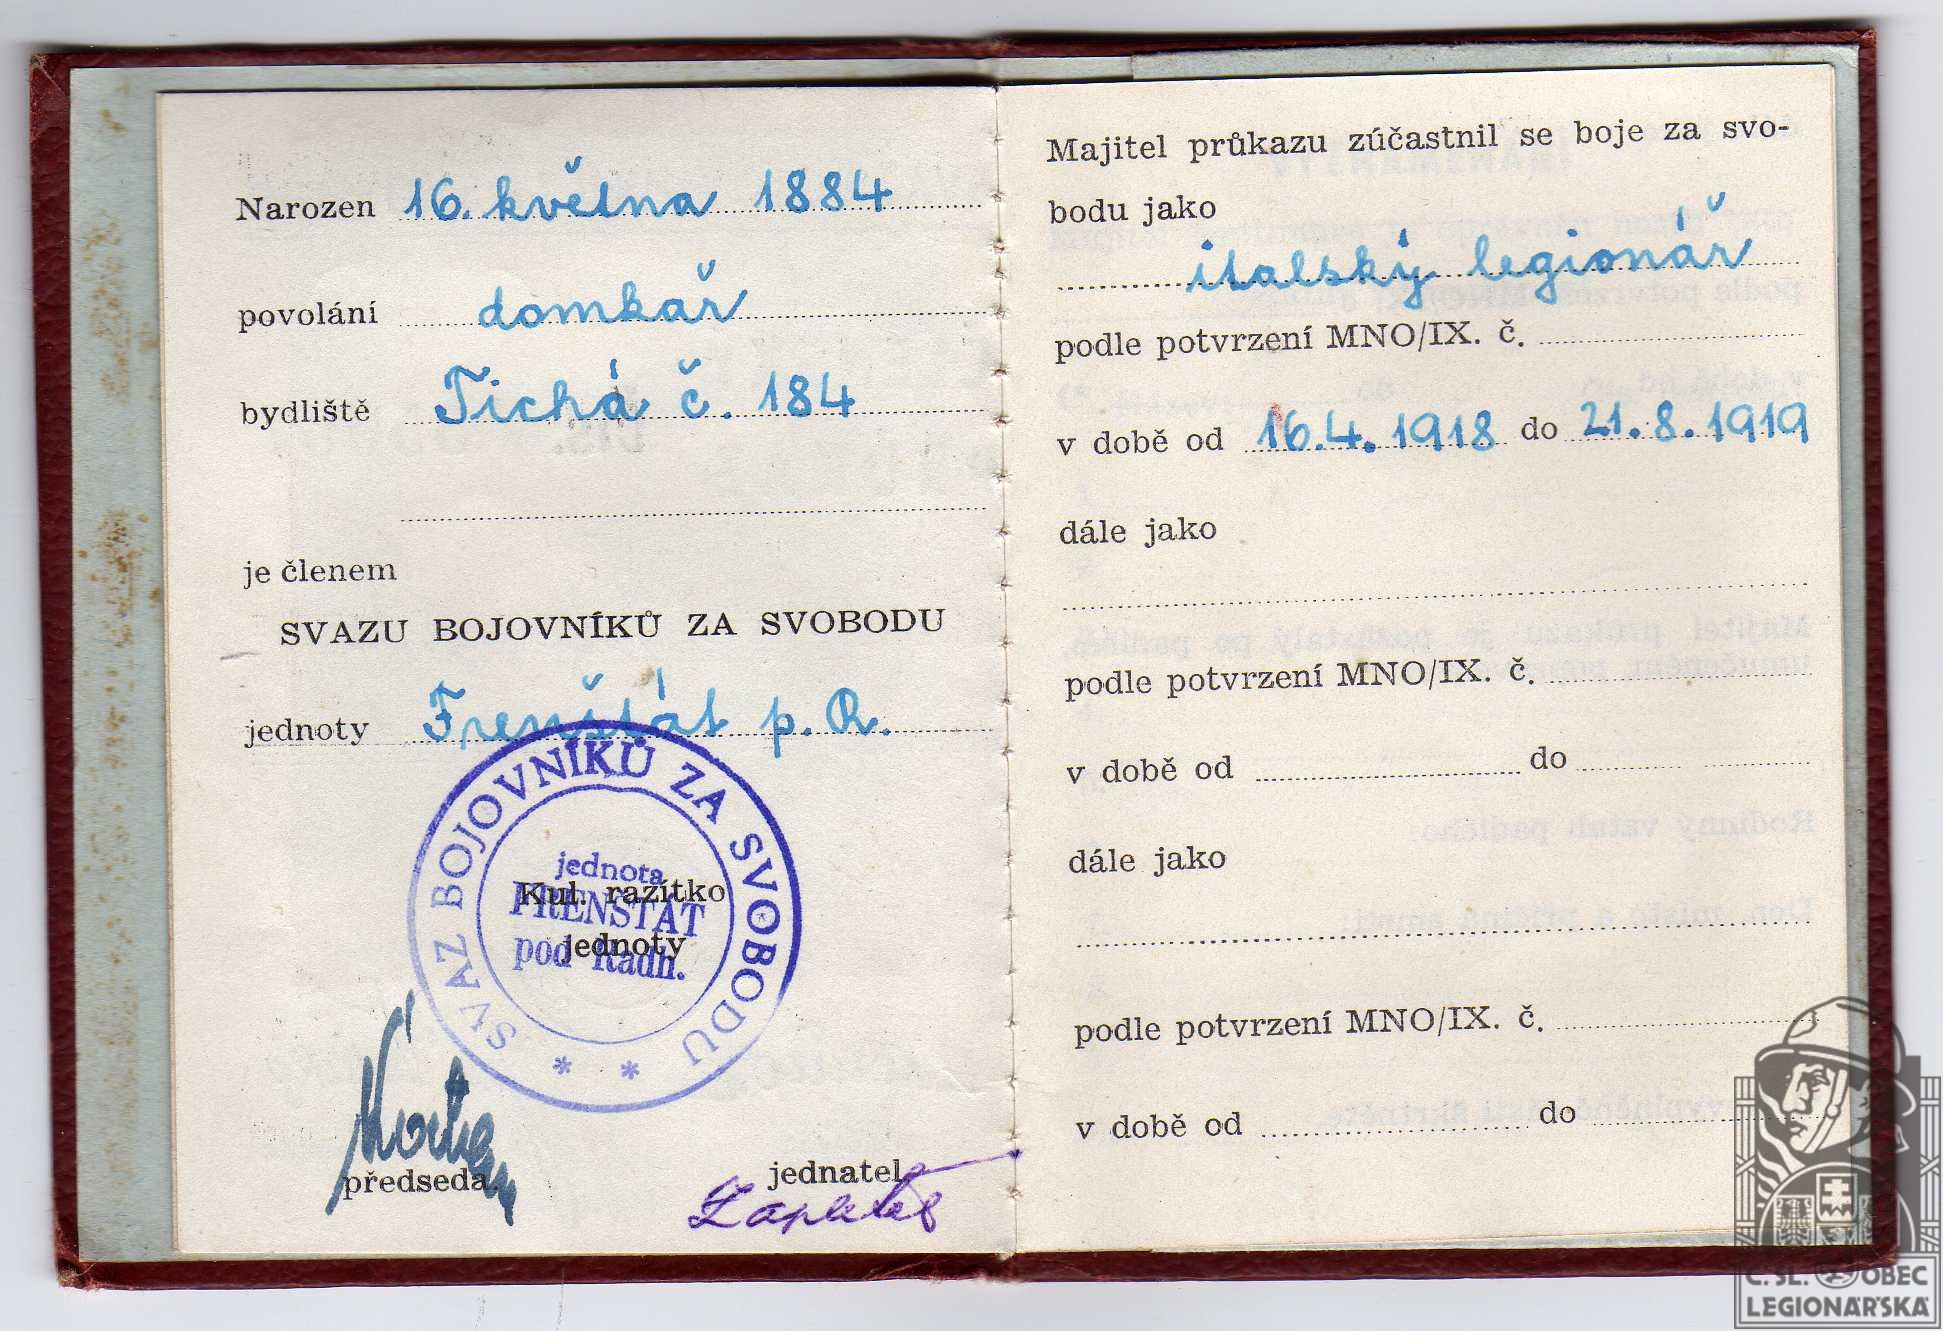 Narozen 16. května 1884
povolání domkař
bydliště Tichá č. 184
je členem
SVAZU BOJOVNÍKŮ ZA SVOBODU
jednoty Frenštát p. R.
SVAZ BOJOVNÍKŮ ZA SVOBODU * *
jednota
FRENŠTÁT
pod Radh.
Kul. razítko
jednoty
předseda.
jednatel
Majitel průkazu zúčastnil se boje za svo-
bodu jako
italský legionář
podle potvrzení MNO/IX. č.
v době od 16.4.1918 do 21.8.1919
dále jako
podle potvrzení MNO/IX. č.
v době od do
dále jako
podle potvrzení MNO/IX. č.
v době od do
Č. SL. OBEC
LEGIONÁŘSKÁ